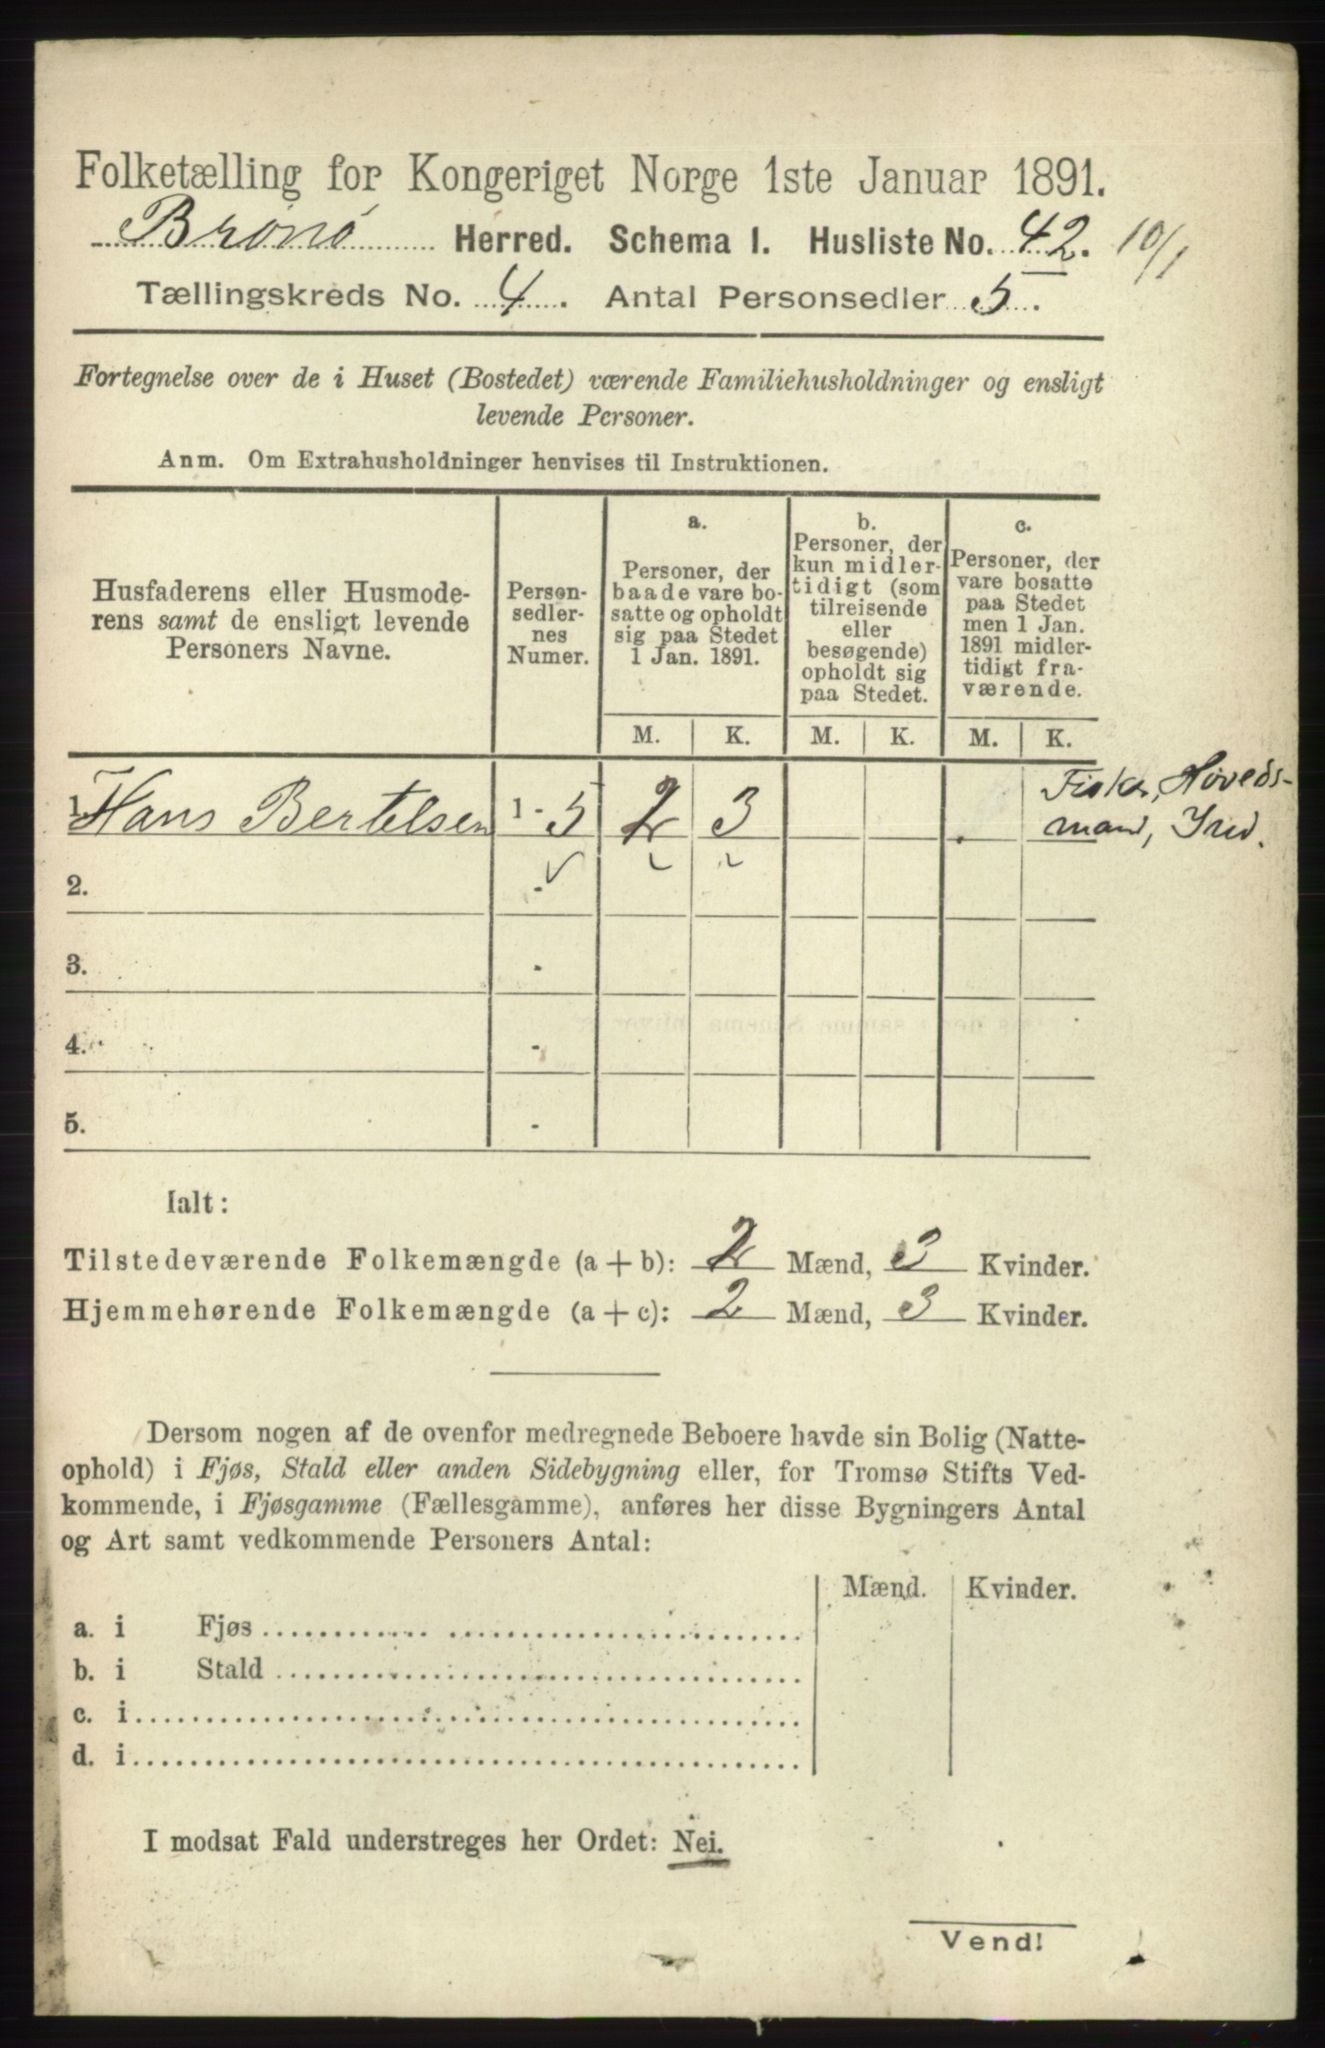 Folketælling for Kongeriget Norge 1ste Januar 1891.
Brønø Herred. Schema I. Husliste No. 42. 10/1
Tællingskreds No. 4. Antal Personsedler 5.
Fortegnelse over de i Huset (Bostedet) værende Familiehusholdninger og ensligt
levende Personer.
Anm. Om Extrahusholdninger henvises til Instruktionen.
Husfaderens eller Husmode-
rens samt de ensligt levende
Personers Navne.
Person-
sedler-
nes
Numer.
a.
Personer, der
baade vare bo-
satte og opholdt
sig paa Stedet
1 Jan. 1891.
b.
Personer, der
kun midler-
tidigt (som
tilreisende
eller
besøgende)
opholdt sig
paa Stedet.
c.
Personer, der
vare bosatte
paa Stedet
men 1 Jan.
1891 midler-
tidigt fra-
værende.
M. K. M. K. M. K.
1. Hans Bertelsen 1 - 5 2 3
Fisker, Høveds-
mand,
2. -
3. -
4. -
5. -
Ialt:
Tilstedeværende Folkemængde (a + b): 2 Mænd, 3 Kvinder.
Hjemmehørende Folkemængde (a + c): 2 Mænd, 3 Kvinder.
Dersom nogen af de ovenfor medregnede Beboere havde sin Bolig (Natte-
ophold) i Fjøs, Stald eller anden Sidebygning eller, for Tromsø Stifts Ved-
kommende, i Fjøsgamme (Fællesgamme), anføres her disse Bygningers Antal
og Art samt vedkommende Personers Antal:
Mænd. Kvinder.
a. i Fjøs
b. i Stald
c. i
d. i
I modsat Fald understreges her Ordet: Nei.
Vend!